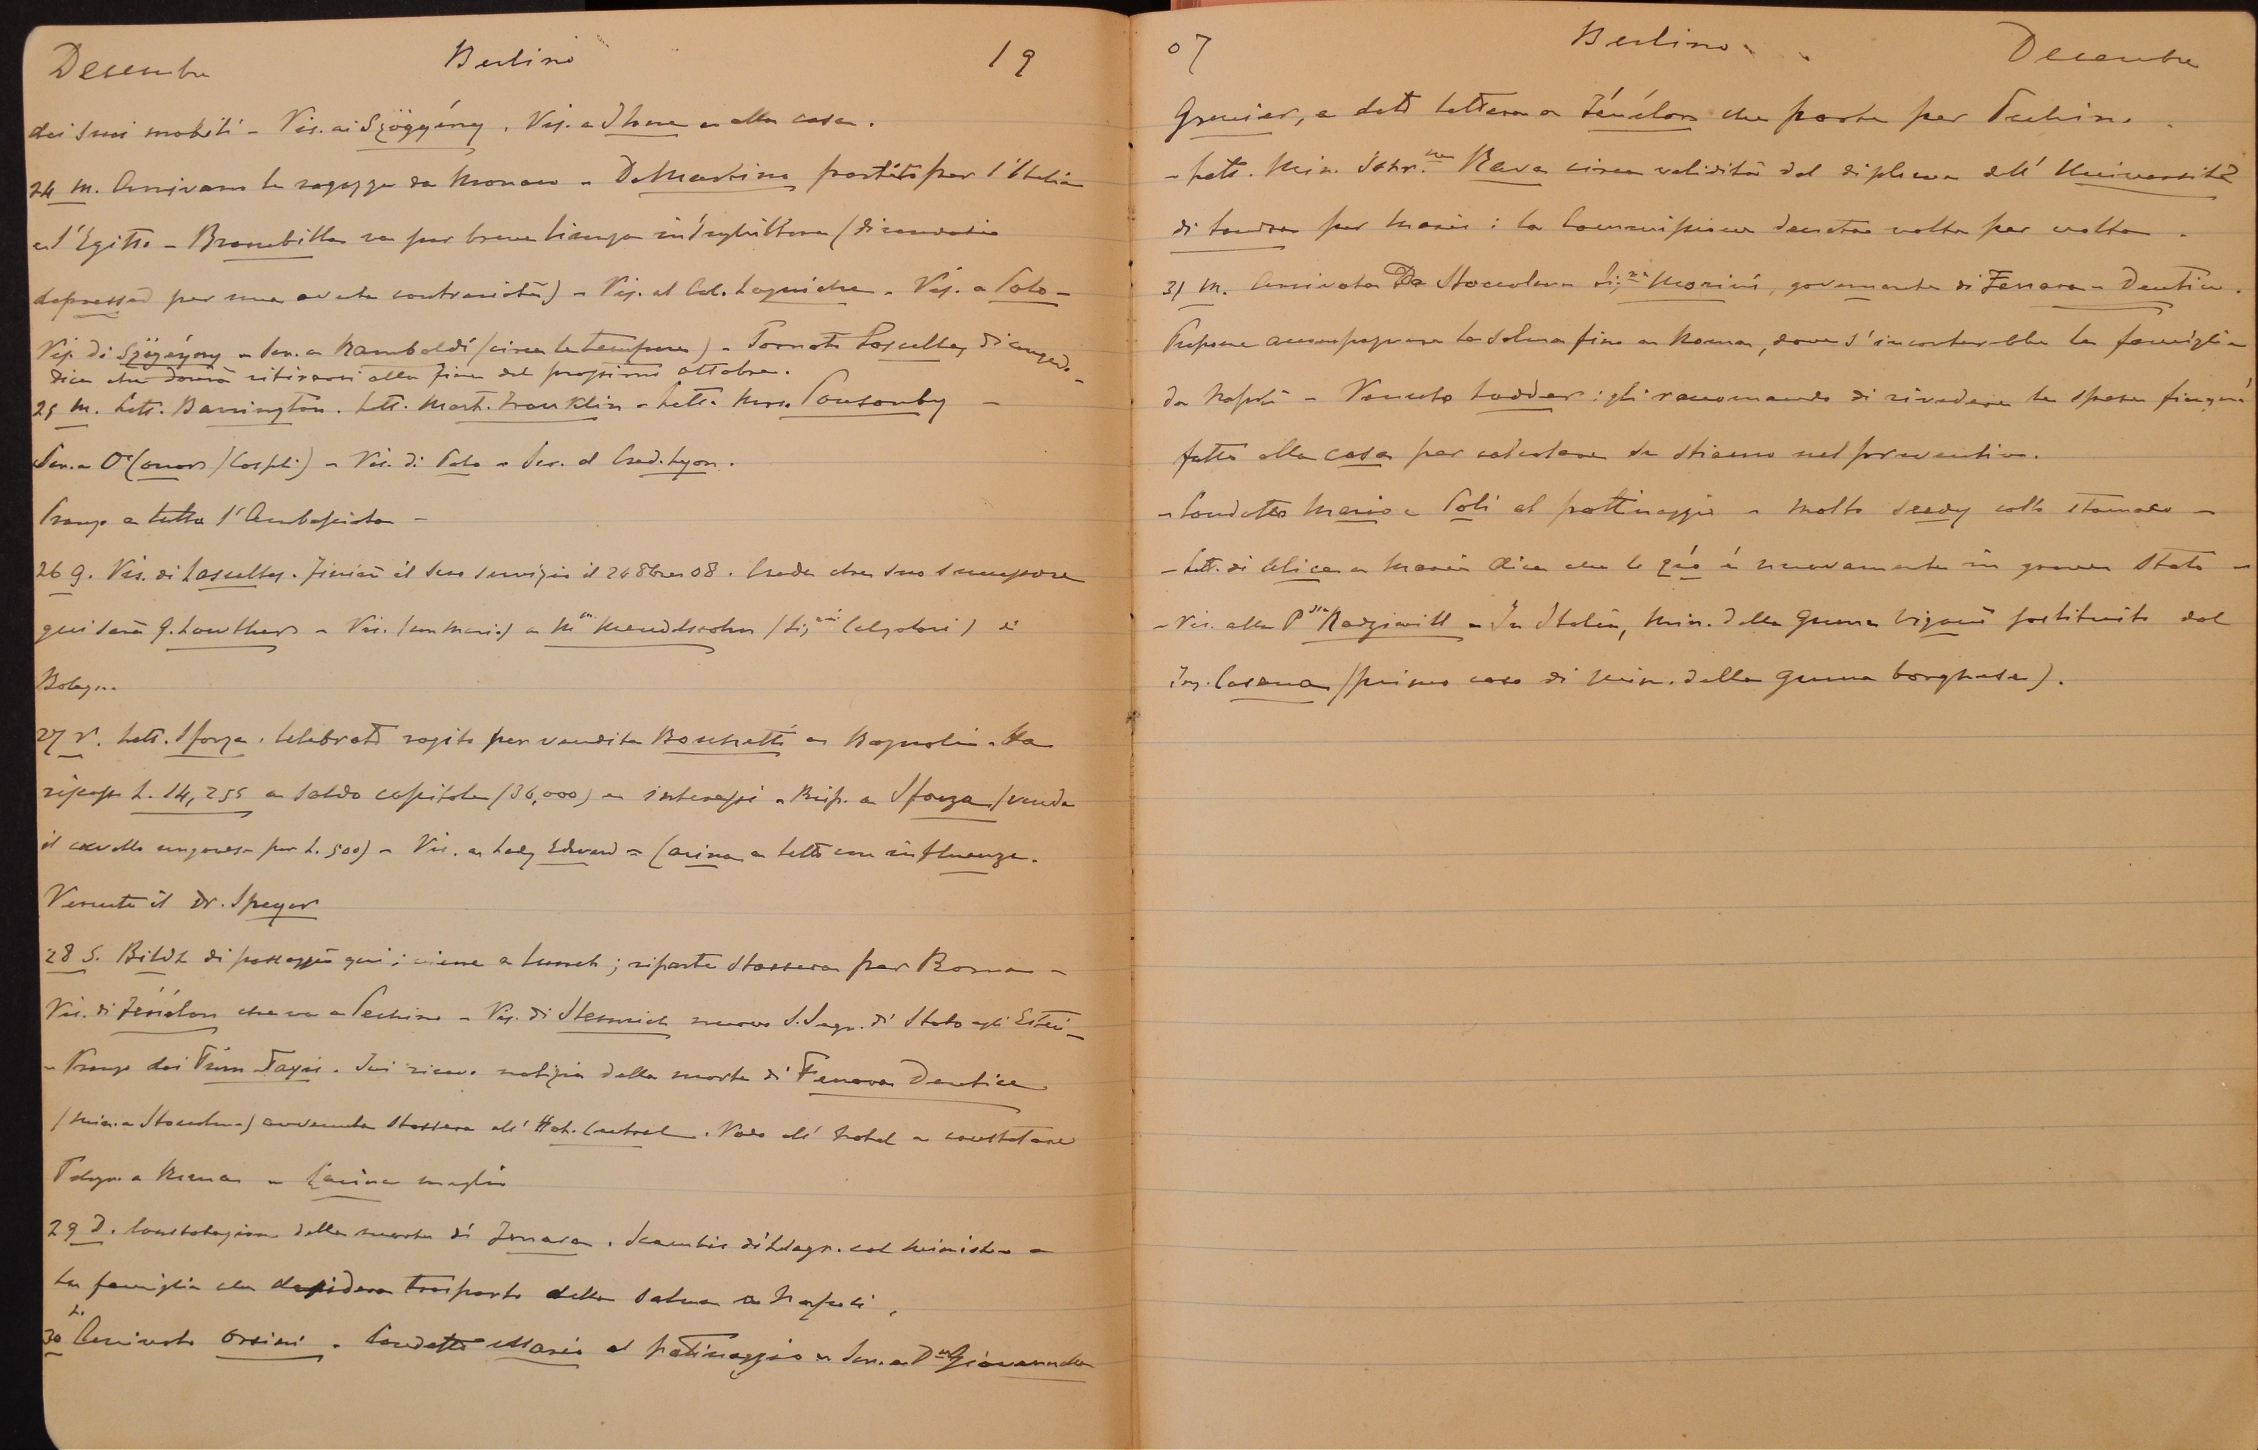 Decembre Berlino 19
dei suoi mobili – Vis. ai Szögyény. Vis. a Stone e alla casa.
24 M. Arrivano le ragazze da Monaco – DeMartino partito per l'Italia
e l'Egitto – Brambilla va per breve licenza in Inghilterra (di umore
depresso per una avuta contrarietà) – Vis. al Col. Laguiche – Vis. a Polo –
Vis. di Szögyény – Scr. a Ramboldi (circa le tempere) – Tornato Lascelles di congedo –
dice che dovrà ritirarsi alla fine del prossimo ottobre.
25 M. Lett. Barrington. Lett. Mart. Franklin – Lett. Mrs. Ponsonby –
Scr. a O'Conor (Cospli) – Vis. di Polo – Scr. al Cred. Lyon.
Pranzo a tutta l'Ambasciata –
26 G. Vis. di Lascelles. Finirà il suo servizio il 26 8bre 08. Crede che suo successore
qui sarà G. Lowther – Vis. (con Maria) a Mme Mendelssohn (Sig.na Calzolari) di
Bologna
27 V. Lett. Sforza. Celebrato rogito per vendita Boschetti a Bagnolin. Ha
riscosso L. 14,255 a saldo capitale (36,000) e interessi – Risp. a Sforza (venda
il cavallo ungherese per L. 500) – Vis. a Lady Edward – Carina a letto con influenza.
Venuto il Dr. Speyer
28 S. Bildt di passaggio qui; viene a lunch; riparte stassera per Roma –
Vis. di Fénélon che va a Pechino – Vis. di Stemrich nuovo S. Segr. di Stato agli Esteri –
– Pranzo dai Turn Taxis. Ivi ricevo notizia della morte di Ferrara Dentice
(Min. a Stoccolma) avvenuta stassera all' Hot. Central. Vado all' hotel a constatare
Telegr. a Roma – Carina meglio
29 D. Constatazione della morte di Ferrara. Scambio di telegr. col Ministero e
la famiglia che desidera trasporto della salma a Napoli.
30 L. Arrivato Orsini. Condotto Mario al pattinaggio – Scr. a Dn Giovannela
07 Berlino Decembre
Grenier, e detti lettera a Fénélon che parte per Pechino.
– Lett. Min. Istr.ne Rava circa validità del diploma dell' Università
di Londra per Mario: la Commissione decreta volta per volta.
31 M. Arrivata Da Stoccolma Sig.na Morini, governante di Ferrara – Dentice.
Propone accompagnare la salma fino a Roma, dove s'incontrerebbe la famiglia
da Napoli – Venuto Ludder: gli raccomando di rivedere le spese finquì
fatte alla casa per calcolare se stiamo nel preventivo.
– Condotto Mario e Poli al pattinaggio – Molto seedy collo stomaco –
– Lett. di Alice a Maria dice che lo zio è nuovamente in grave stato –
– Vis. alla Pssa Radziwill – In Italia, Min. della Guerra Viganò sostituito dal
Ing. Casana (primo caso di Min. della Guerra borghese).